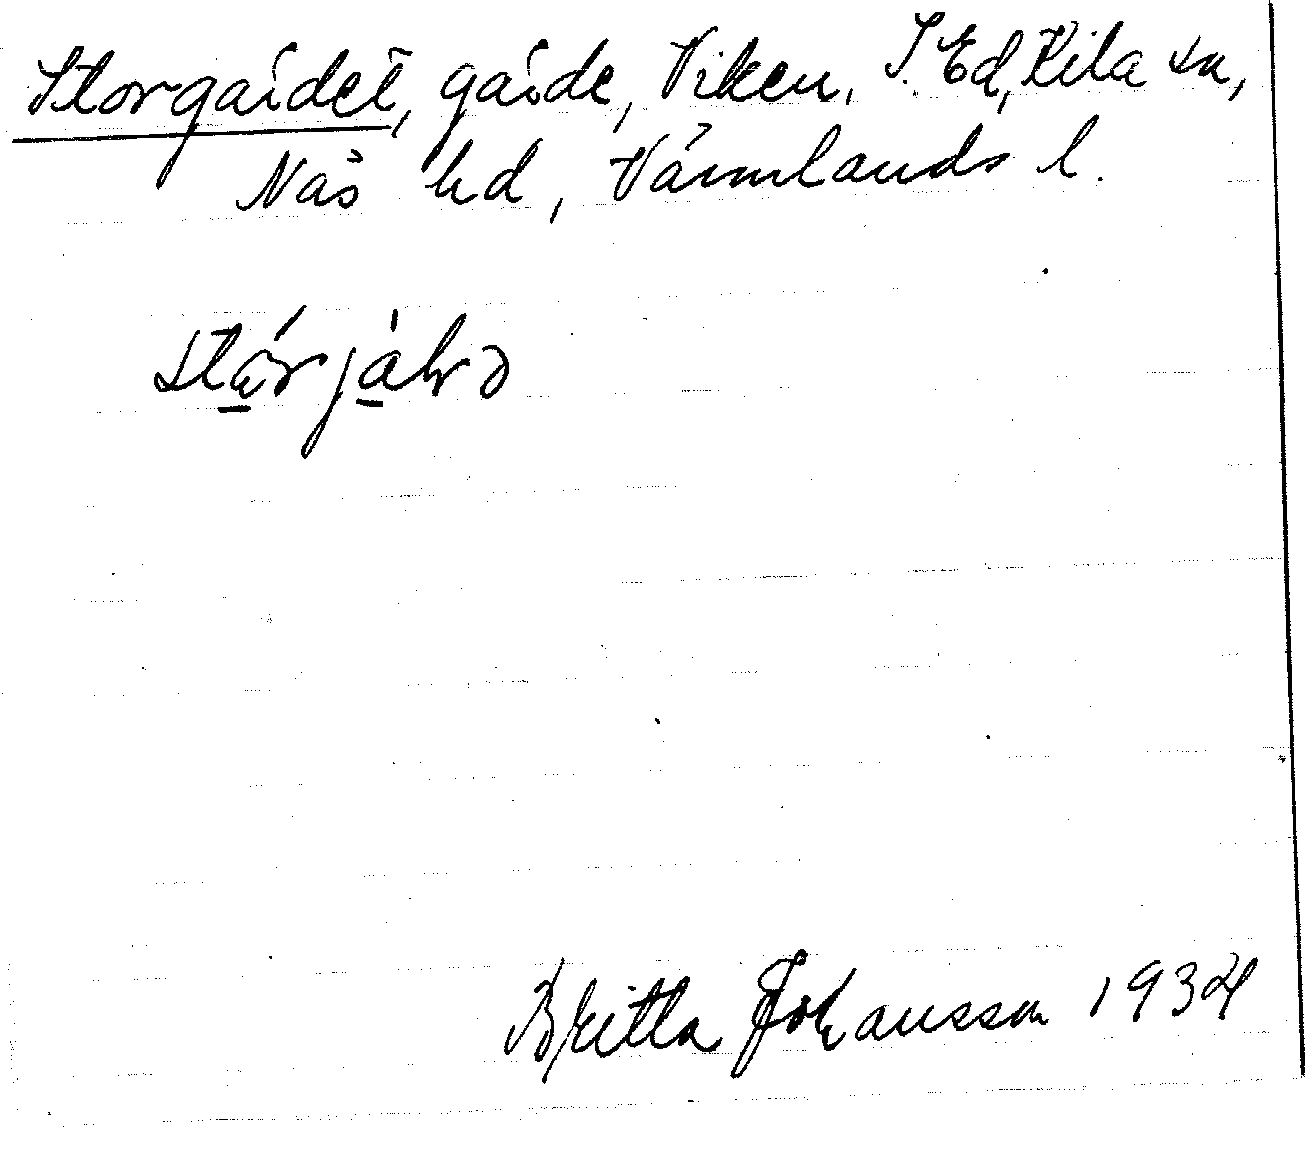 Storgärdet, gärde, Viken, S. Ed, Kila sn,
Näs hd, Värmlands l.
Britta Johansson 1934